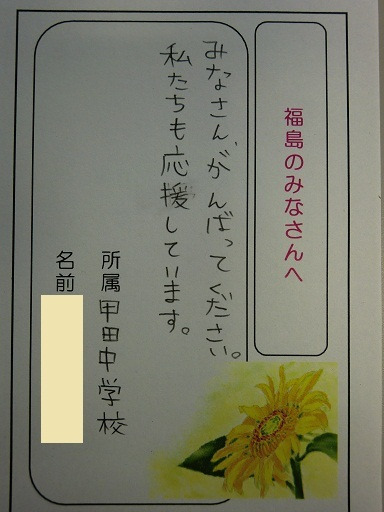 福島のみなさんへ
みなさん、がんばってください。
私たちも応援しています。
所属 甲田中学校
名前